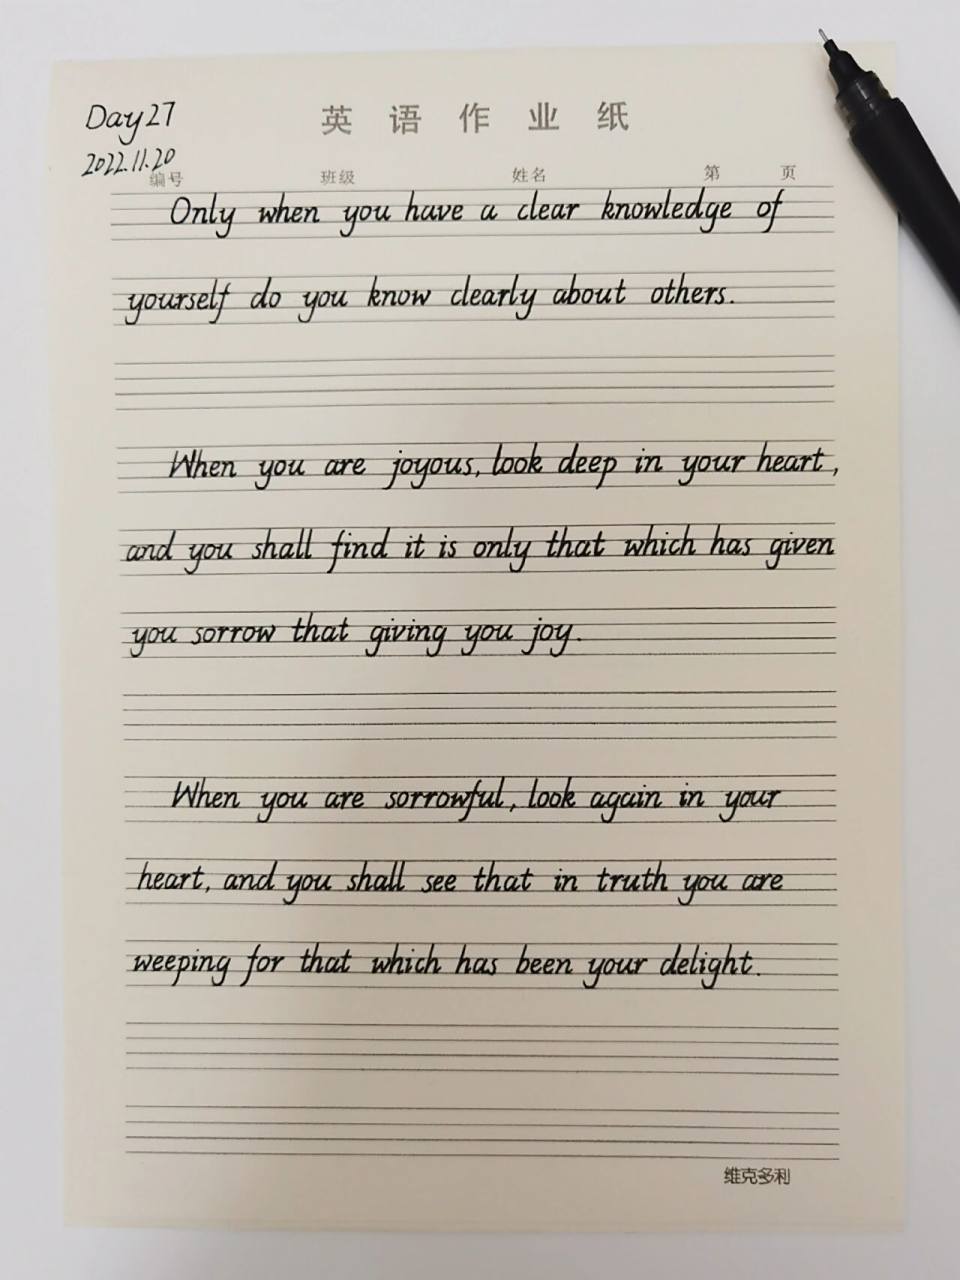 Day27
英语作业纸
2022.11.20
编号 班级 姓名 第 页
Only when you have a clear knowledge of
yourself do you know clearly about others.
When you are joyous, look deep in your heart,
and you shall find it is only that which has given
you sorrow that giving you joy.
When you are sorrowful, look again in your
heart, and you shall see that in truth you are
weeping for that which has been your delight.
维克多利